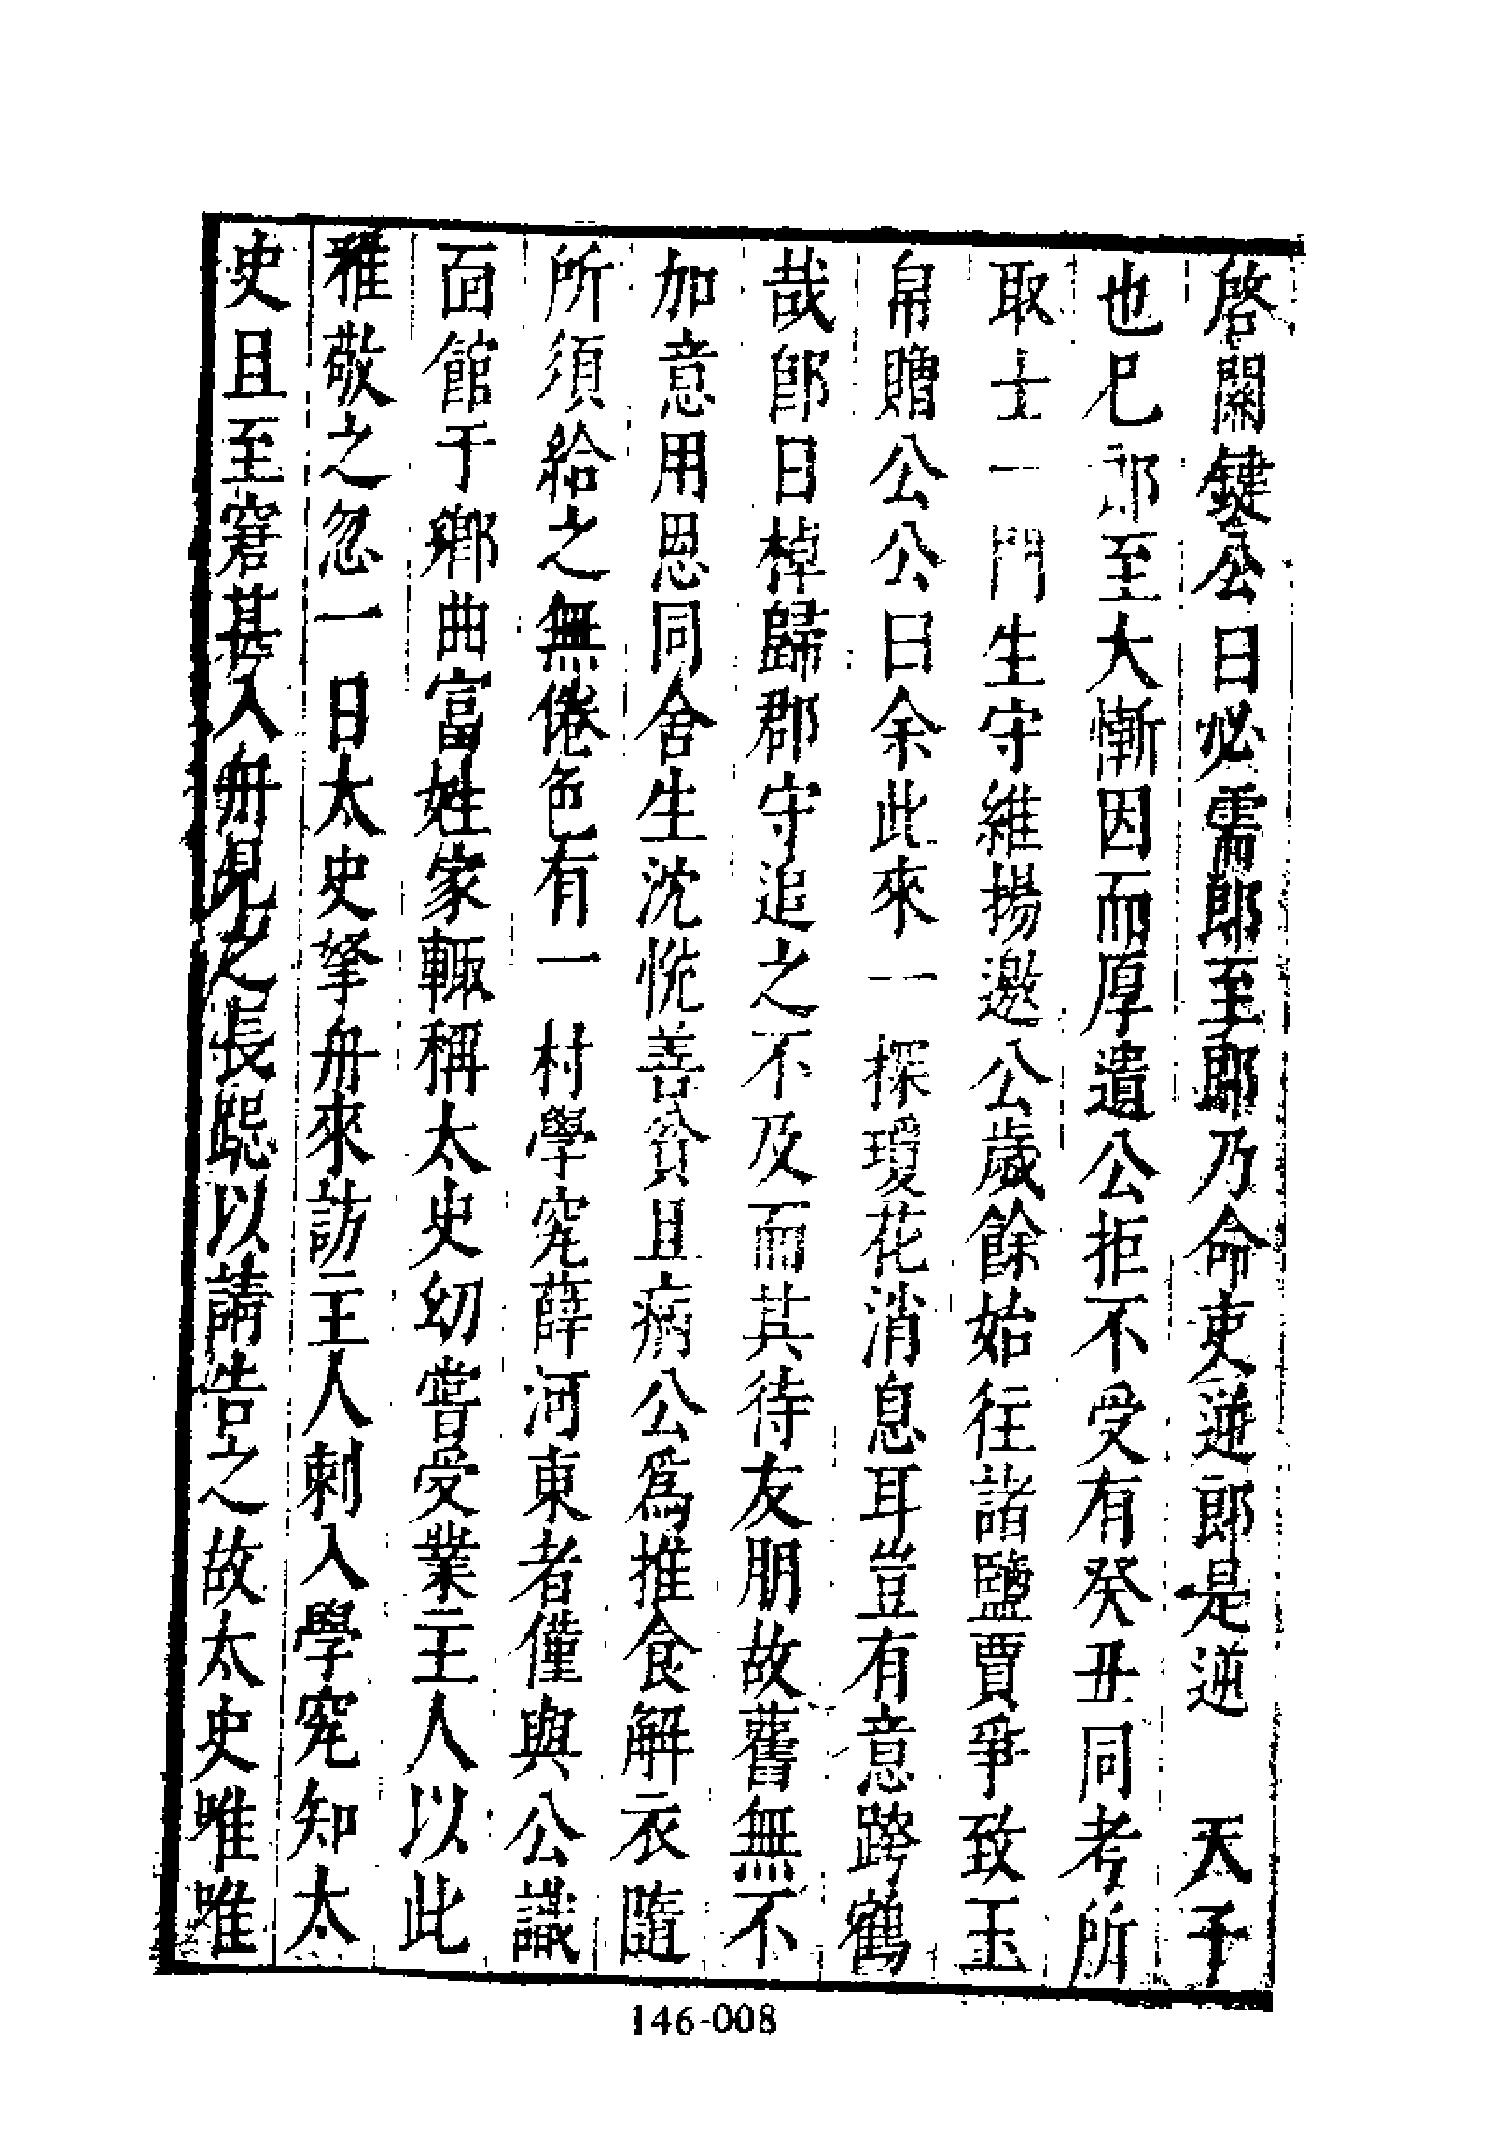 啓關鍵公曰必需郎至郎乃命吏逆郎是逆　天子
也已郎至大慚因而厚遺公拒不受有癸丑同考所
取士一門生守維揚邀公歲餘始往諸鹽賈爭致玉
帛贈公公曰余此來一探瓊花消息耳豈有意跨鶴
哉卽日棹歸郡守追之不及而其待友朋故舊無不
加意用恩同舍生沈恱善貧且病公爲推食解衣隨
所須給之無倦色有一村學究薛河東者僅與公識
面館于鄉曲富姓家輙稱太史幼嘗受業主人以此
雅敬之忽一日太史拏舟來訪主人刺入學究知太
史且至窘甚入舟見之長跽以請告之故太史唯唯
146-008